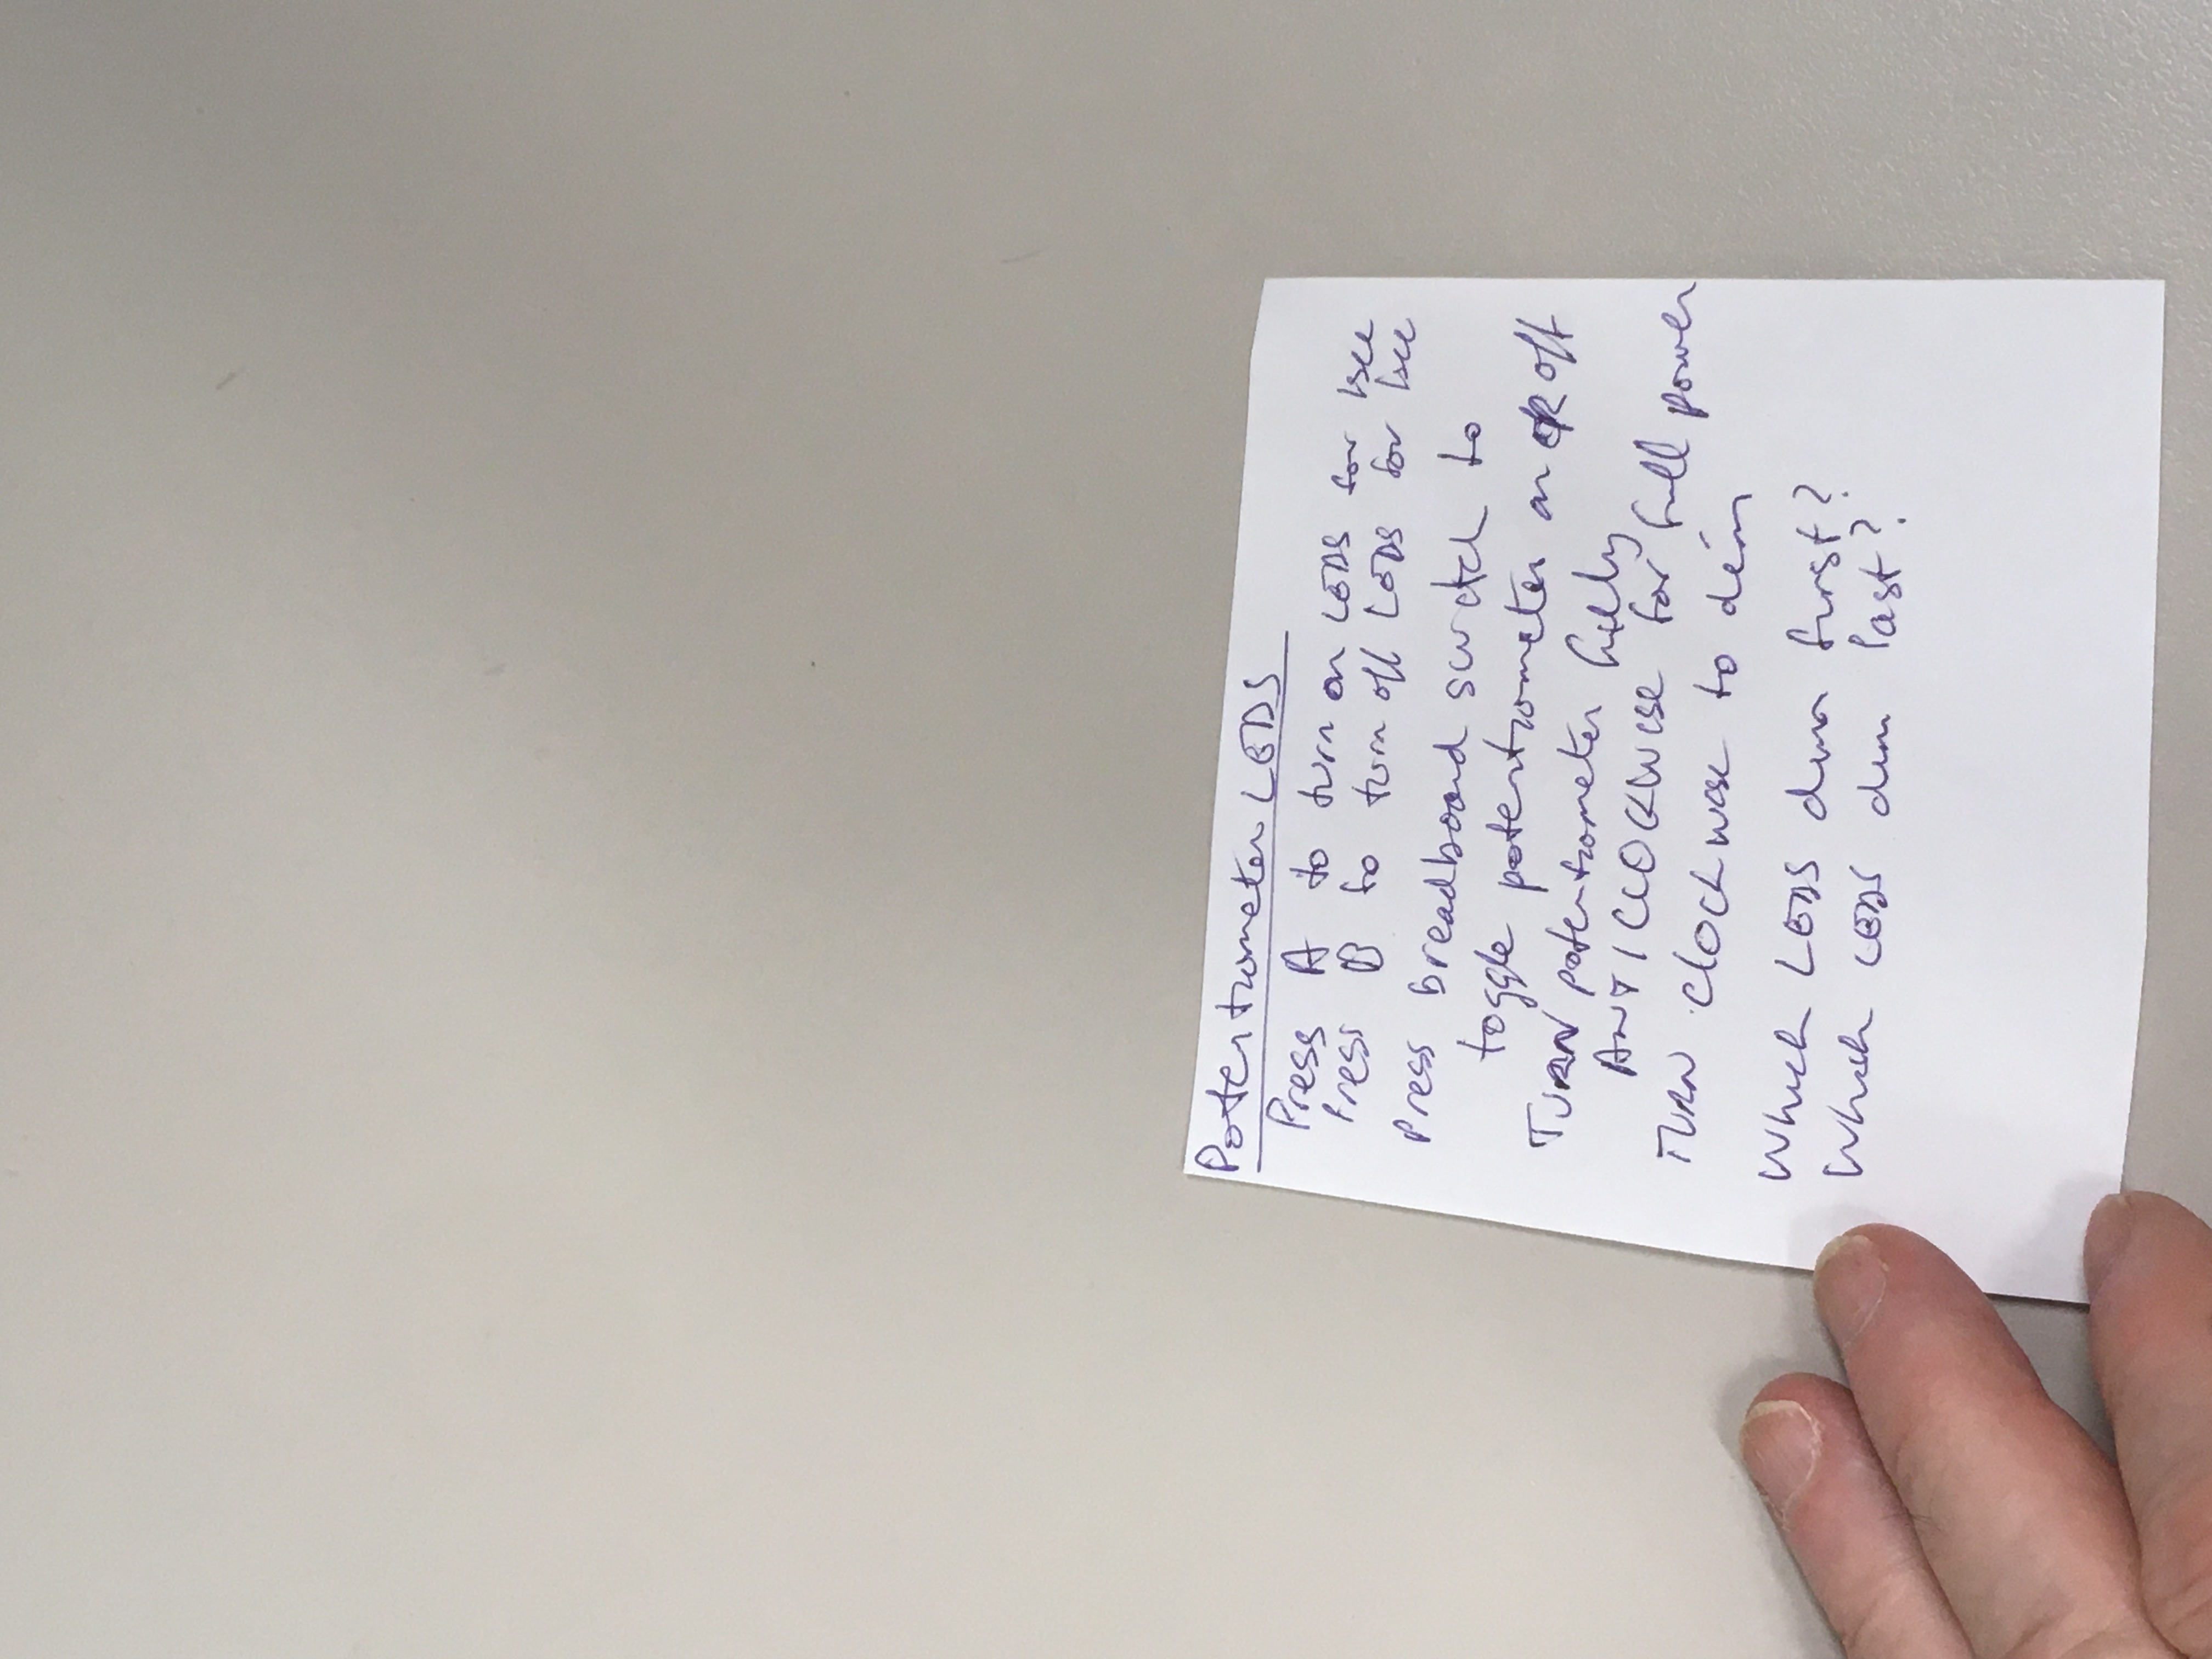 Potentiometer LEDS
Press A to turn on LEDS for 1sec
Press B to turn off LEDS for 1sec
Press breadboard switch to
toggle potentiometer on OR off
TURN potentiometer fully
ANTICLOCKWISE for full power
TURN clockwise to dim
Which LEDS dim first?
Which LEDS dim last?